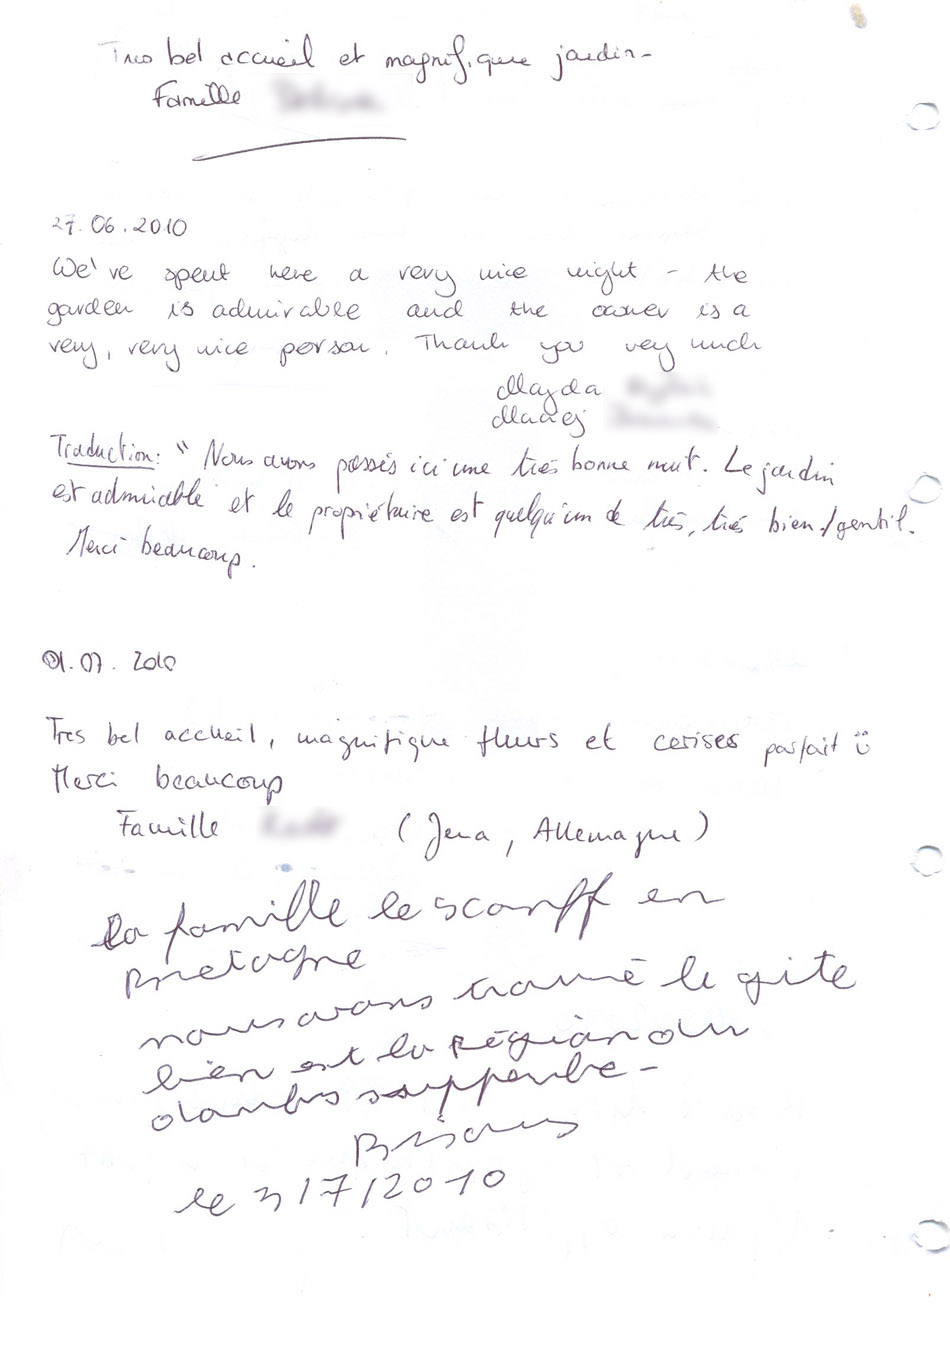 Tres bel accueil et magnifique jardin-
Famille
27.06.2010
We've spent here a very nice night - the
garden is admirable and the owner is a
very, very nice person. Thank you vey much
Magda
Maciej
Traduction: " Nous avons passés ici une très bonne nuit. Le jardin
est admirable et le propriétaire est quelqu'un de très, très bien/gentil.
Merci beaucoup.
01.07. 2010
Tres bel accueil, magnifique fleurs et cerises parfait ü
Merci beaucoup
Famille (Jena, Allemagne)
la famille le scanff en
Bretagne
nous avons trouvé le gite
bien et la région du
doubs supperbe-
Bisous
le 3/7/2010